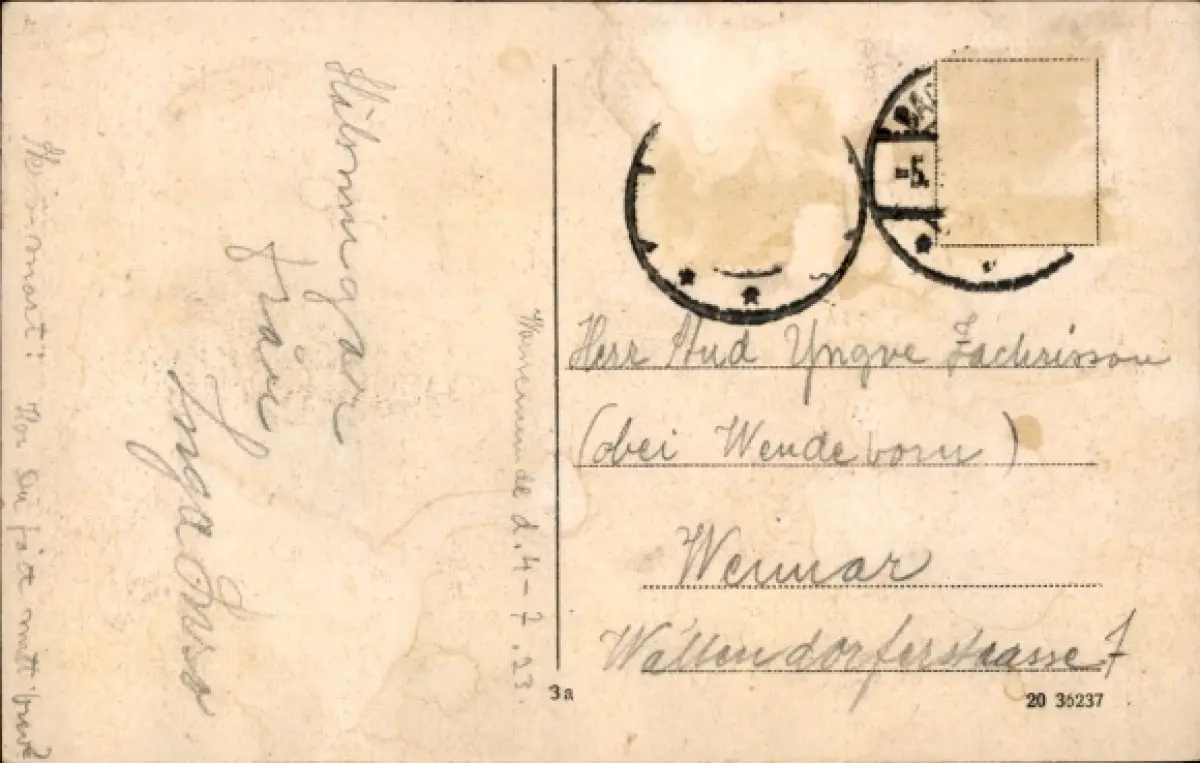 Warnemünde d. 4-7.23.
Hälsningar
från
Inga
Har Du fått mitt
Herr Stud Yngve Zachrisson
(bei Wendeborn)
Weimar
Wallendorferstrasse 7
-5.
3a
20 36237